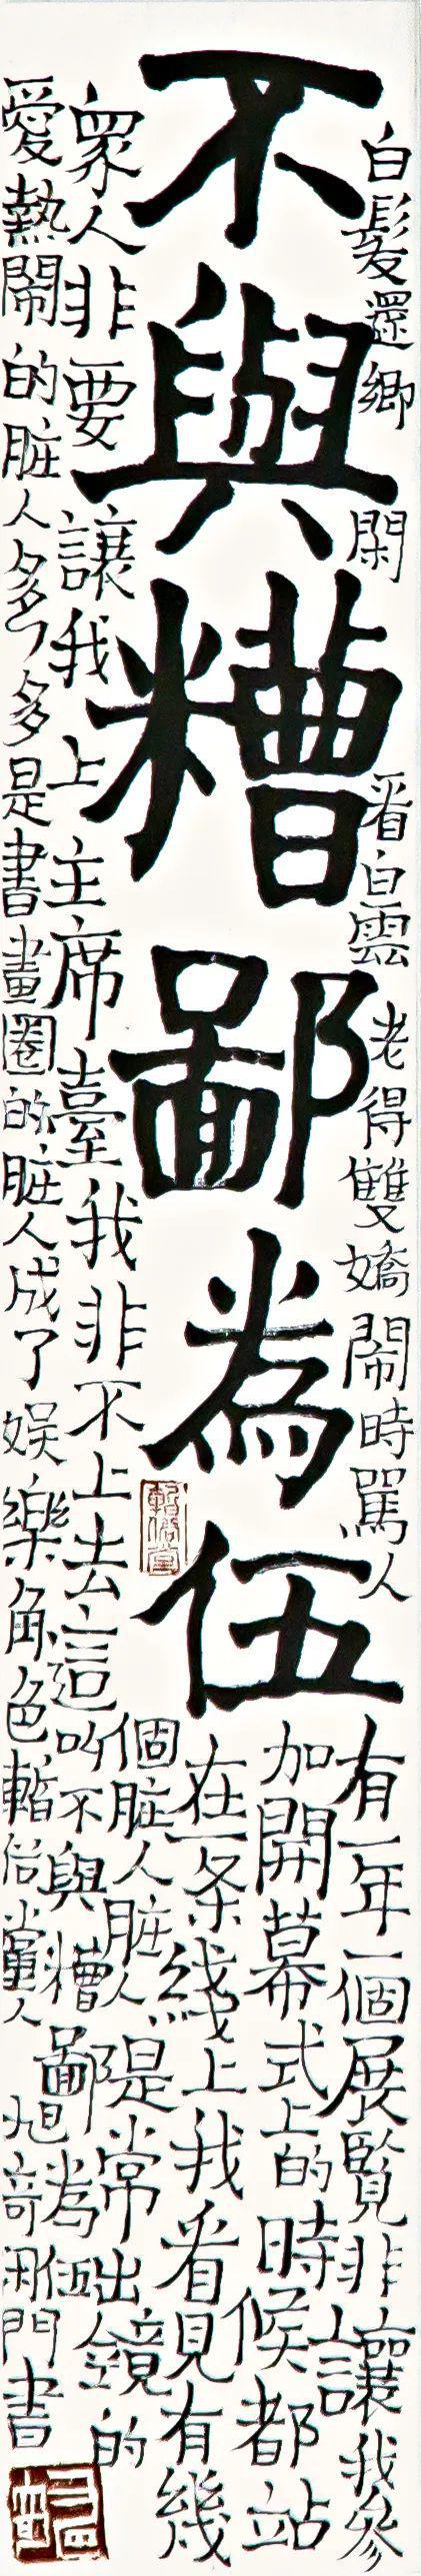 不與糟鄙為伍
白髮還鄉
閑看白雲
老得雙嬌
鬧時罵人
有一年一個展覽非讓我參
加開幕式上的時候都站
在一条綫上我看見有幾
個脏人脏人是常出鏡的
眾人非要讓我上主席臺我非不上去這叫不與糟鄙為伍
愛熱鬧的脏人多多是書畫圈的脏人成了娛樂角色暫俗堂人旭奇閉門書